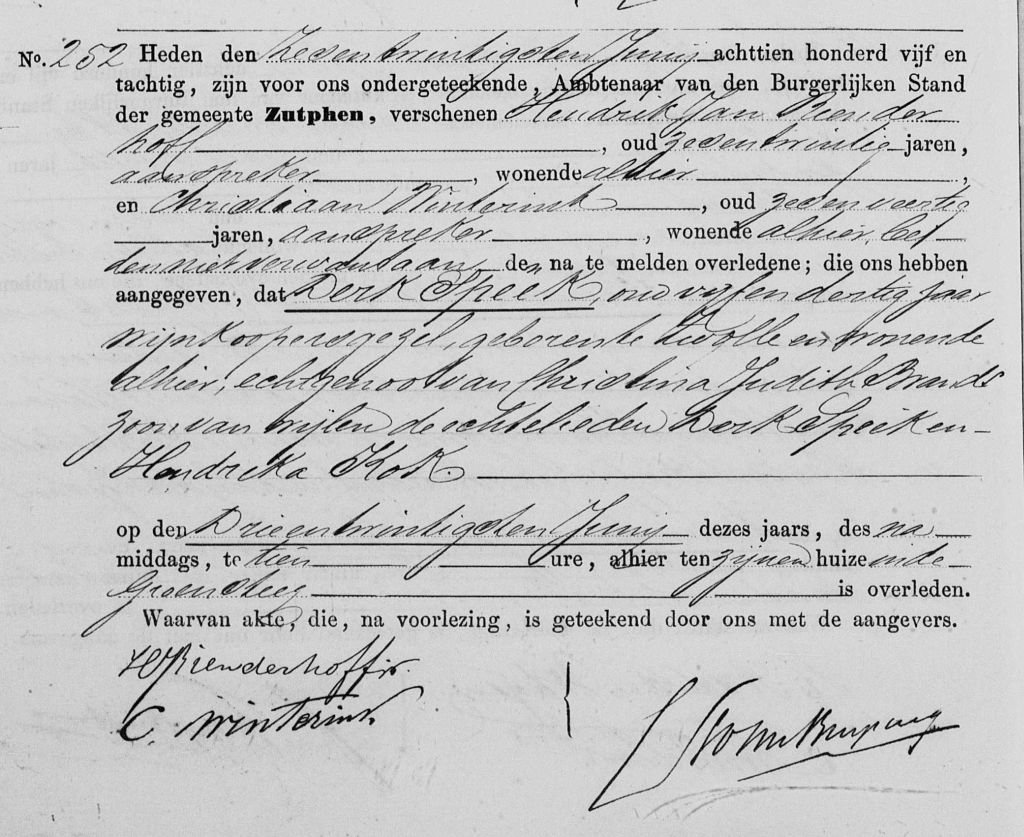 No. 252 Heden den Zevenentwintigsten Junij achttien honderd vijf en
tachtig, zijn voor ons ondergeteekende, Ambtenaar van den Burgerlijken Stand
der gemeente Zutphen, verschenen Hendrik Jan Riender
hoff, oud zevenentwintig jaren,
aanspreker, wonende alhier,
en Christiaan Winterink, oud zevenveertig
jaren, aanspreker, wonende alhier, bei
den niet verwant aan den na te melden overledene; die ons hebben
aangegeven, dat Derk Speek, oud vijfendertig jaar
wijnkoopersgezel, geboren te Zwolle en wonende
alhier, echtgenoot van Christina Judith Brands
zoon van wijlen de echtelieden Derk Speek en
Hendrika Kok
op den Drieentwintigsten Junij dezes jaars, des na
middags, te tien ure, alhier ten zijnen huize in de
Groensteeg is overleden.
Waarvan akte, die, na voorlezing, is geteekend door ons met de aangevers.
HJRienderhoff jr.
C. Winterink